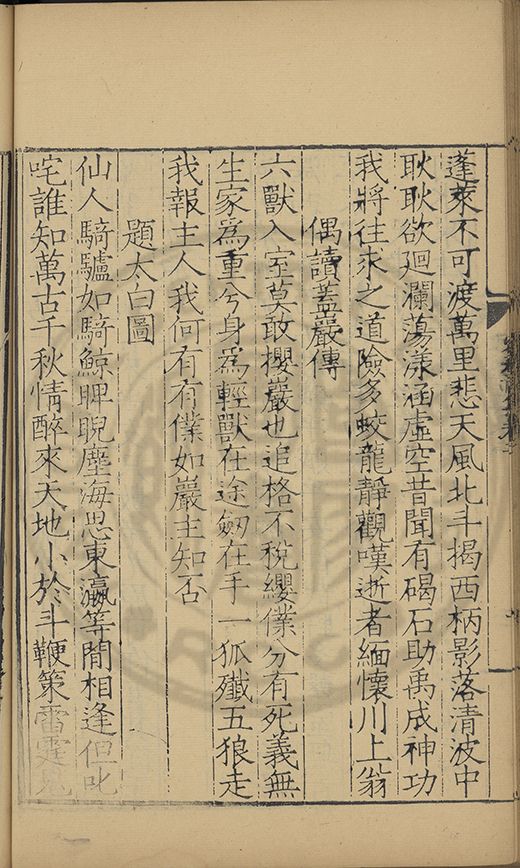 蓬萊不可渡萬里悲天風北斗揭西柄影落清波中
耿耿欲廻瀾蕩漾涵虛空昔聞有碣石助禹成神功
我將往求之道險多蛟龍靜觀嘆逝者緬懷川上翁
偶讀蓋巖傳
六獸入室莫敢攖巖也追格不稅纓僕分有死義無
生家爲重兮身爲輕獸在途劒在手一狐殲五狼走
我報主人我何有有僕如巖主知否
題太白圖
仙人騎驢如騎鯨睥睨塵海思東瀛等閒相逢但叱
咤誰知萬古千秋情醉來天地小於斗鞭策雷霆鬼